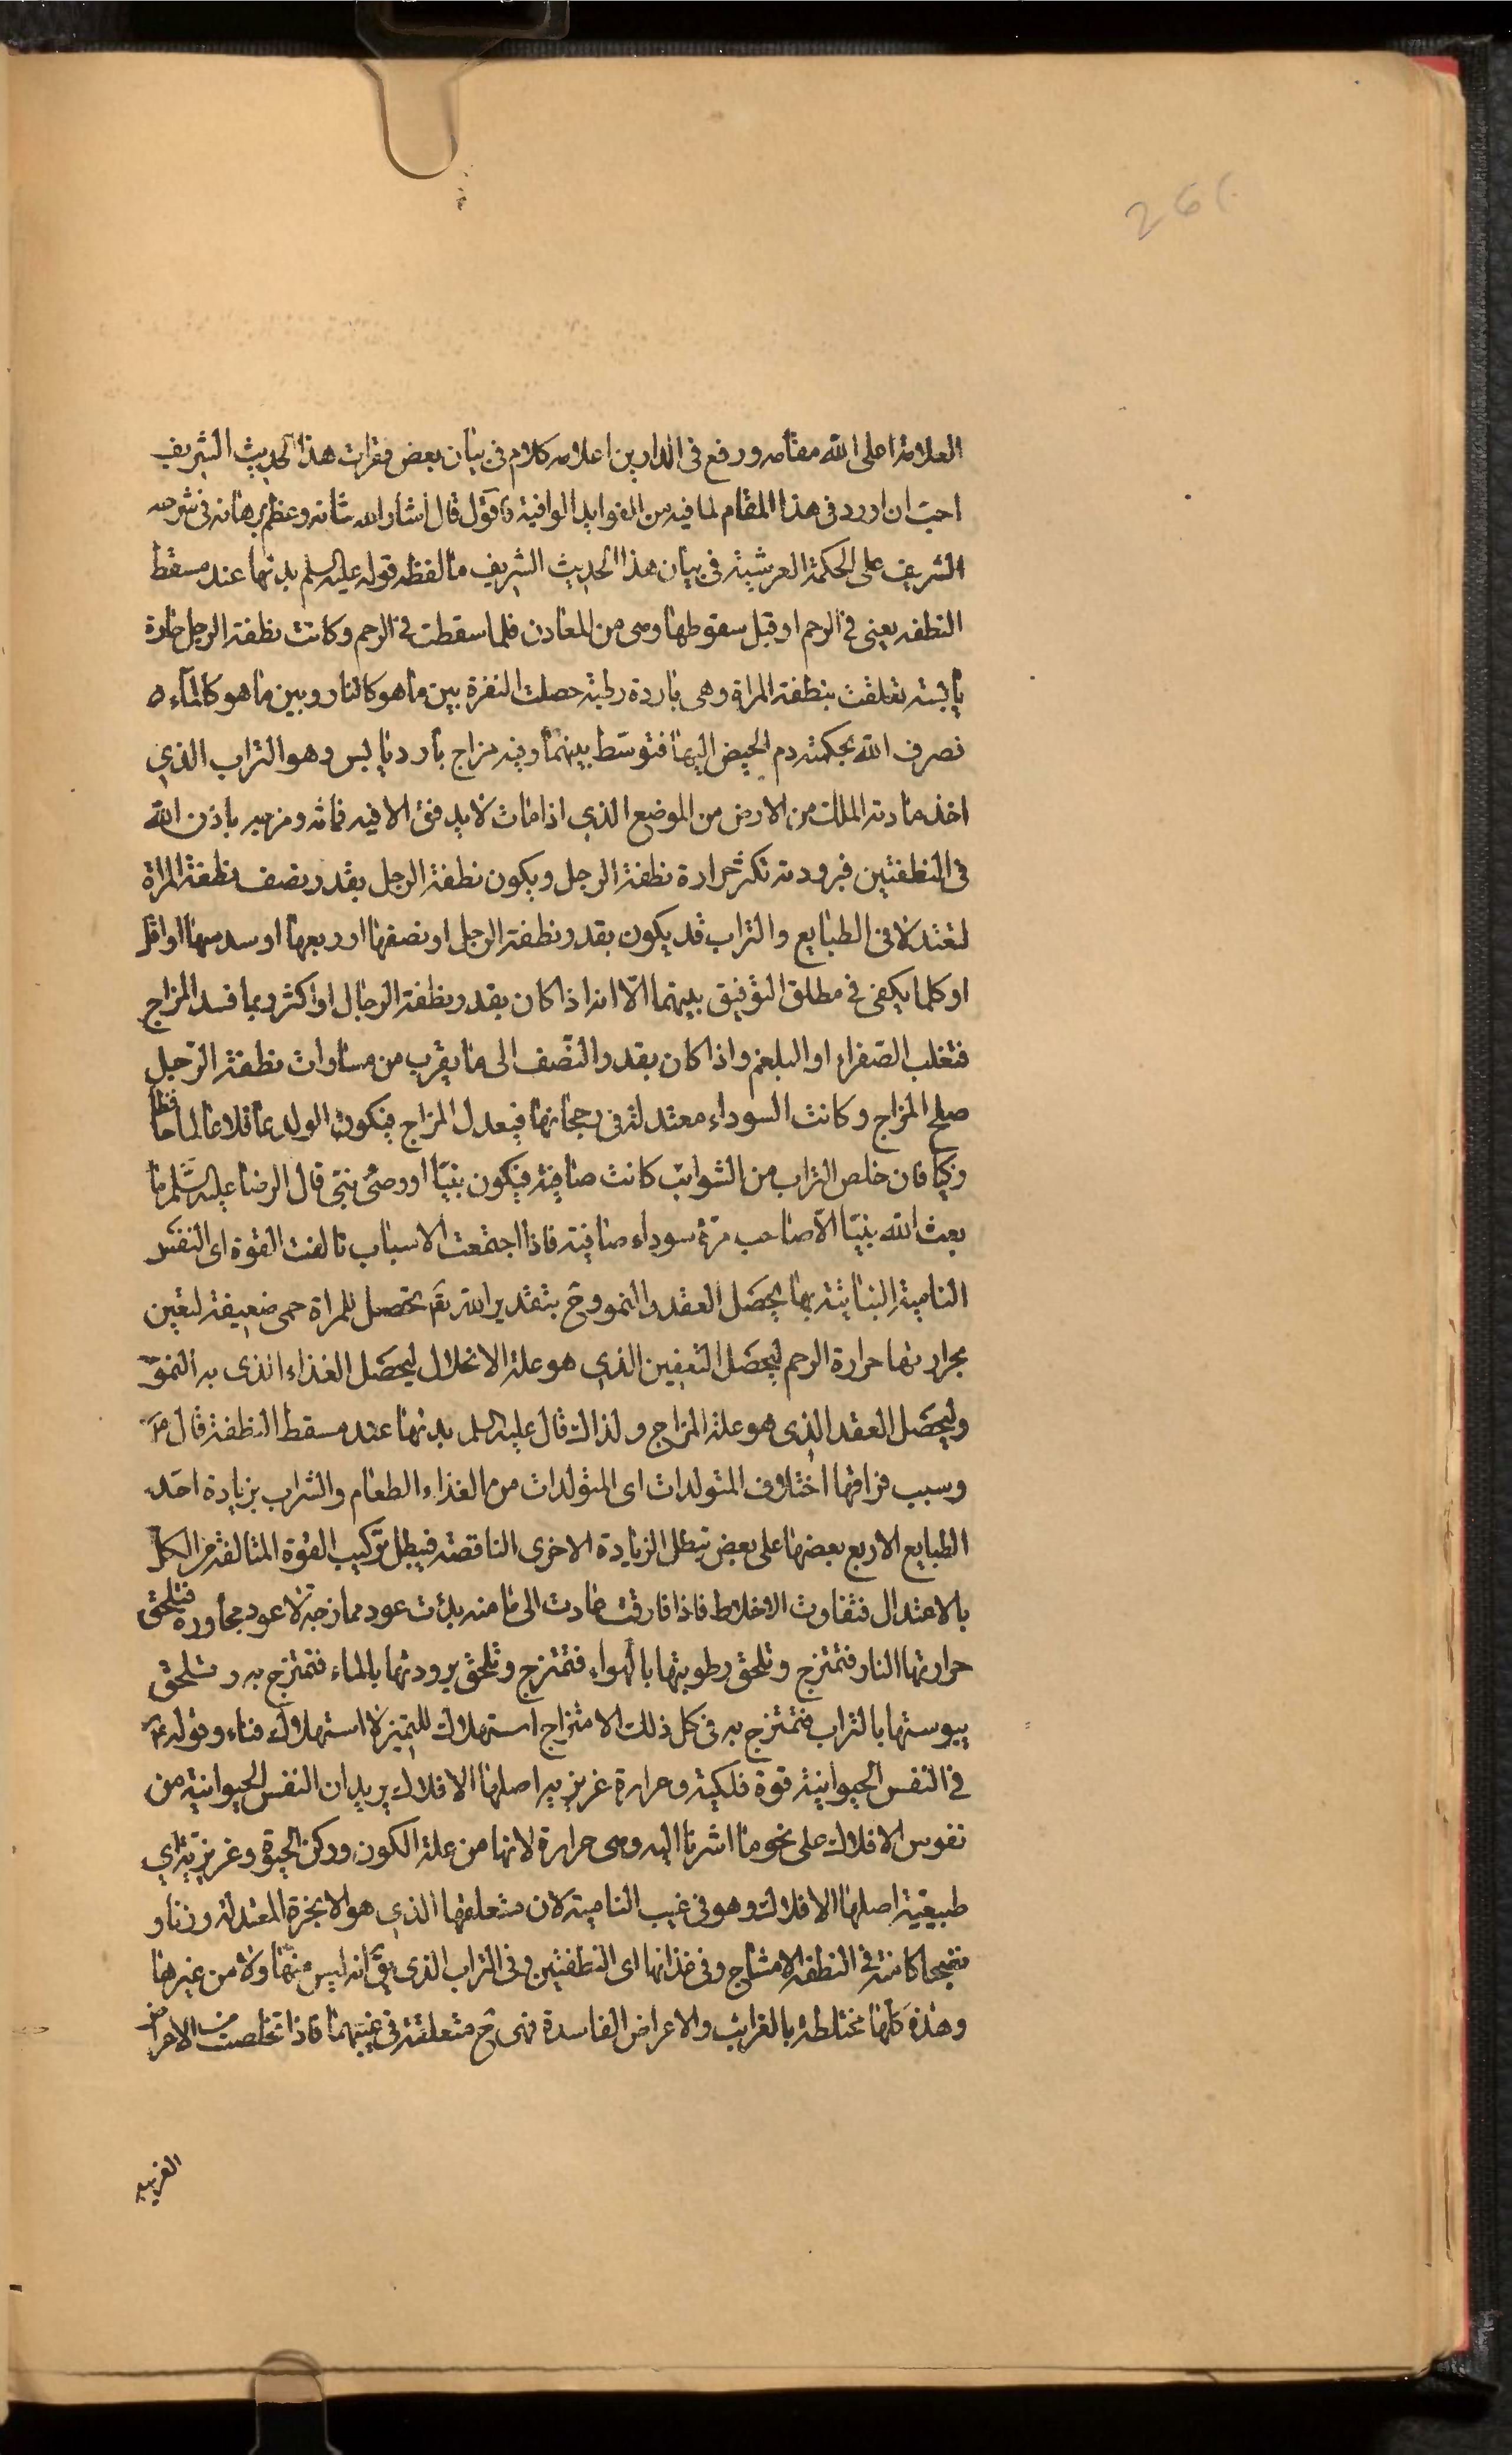 26
العلامة اعلى الله مقامه ورفع فى الدارين اعلامه كلام فى بيان بعض فقرات هذا الحديث الشريف
احبّ ان اورد فى هذا المقام لما فيه من الفوايد الوافية فاقول قال اشار الله شانه وعظم برهانه فى شرحه
الشريف على الحكمة العرشية فى بيان هذا الحديث الشريف ما لفظه قوله عليه السلم بدئها عند مسقط
النطفه يعنى فى الرحم او قبل سقوطها وهى من المعادن فلما سقطت فى الرحم وكانت نطفة الرجل حارة
يابسة تعلقت بنطفة المراة وهى باردة رطبة حصلت النفرة بين ما هو كالنار وبين ما هو كالماء
فصرف الله بحكمته دم الحيض اليها فتوسّط بينهما وفيه مزاج بارد يابس وهو التراب الذي
اخذ مادته الملك من الارض من الموضع الذي اذا مات لا يدفن الا فيه فماثه ومزجه باذن الله
فى النطفتين فبرودته تكثر حرارة نطفة الرجل ويكون نطفة الرجل بقدر نصف نطفة المراة
لتعتدلا فى الطبايع والتراب قد يكون بقدر نطفة الرجل او نصفها او ربعها او سدسها او اقل
او كلما يكفى فى مطلق التوفيق بينهما الّا انه اذا كان بقدر نطفة الرجال او اكثر ربما فسد المزاج
فتغلب الصفراء او البلغم واذا كان بقدر النّصف الى ما يقرب من مساوات نطفة الرّجل
صلح المزاج وكانت السوداء معتدلة فى رجحانها فيعدل المزاج فيكون الولد عاقلا عالما حافظا
وزكيا فان خلص التراب من الشوائب كانت صافية فيكون نبيّا او وصىّ نبىّ قال الرضا عليه السّلم ما
بعث الله نبيّا الّا صاحب مرّة سوداء صافية فاذا اجتمعت الاسباب تالفت القوة اى النفس
النامية النباتية بها يحصل العقد والنمو وح بتقدير الله تعَ تحصل للمراة حمى ضعيفة لتعين
بحرارتها حرارة الرحم ليحصل التعفين الذي هو علة الانحلال ليحصل الغذاء الذى به النموّ
وليحصل العقد الذى هو علة المزاج ولذلك قال عليه السلم بدئها عند مسقط النطفة قال عَ
وسبب فراقها اختلاف المتولدات اى المتولدات من الغذاء الطعام والشراب بزيادة احد
الطبايع الاربع بعضها على بعض تبطل الزيادة الاخرى الناقصة فيبطل تركيب القوة المتالفة من الكل
بالاعتدال فتفاوت الاخلاط فاذا فارقت عادت الى ما منه بدئت عود ممازجة لا عود مجاورة فتلحق
حرارتها النار فتمتزج وتلحق رطوبتها بالهواء فتمتزج وتلحق برودتها بالماء فتمتزج به وتلحق
يبوستها بالتراب فتمتزج به فى كل ذلك الامتزاج استهلاك للتميز لا استهلاك فناء وقوله عَ
فى النفس الحيوانية قوة فلكية وحرارة غريزيه اصلها الافلاك يريد ان النفس الحيوانية من
نفوس الافلاك على نحو ما اشرنا اليه وهى حرارة لانها من علة الكون وركن الحيوة وغريزيّة اي
طبيعيّة اصلها الافلاك وهو فى غيب النامية لان متعلقها الذي هو الابخرة المعتدلة وزنا و
نضجا كامنة فى النطفه الامشاج وفى غذائها اى النطفتين وفى التراب الذى يقَ انه ليس منهما ولا من غيرها
وهذه كلها مختلطة بالغرايب والاعراض الفاسدة فهى ح متعلقة فى غيبهما فاذا تخلصت من الاعراض
الغريبه